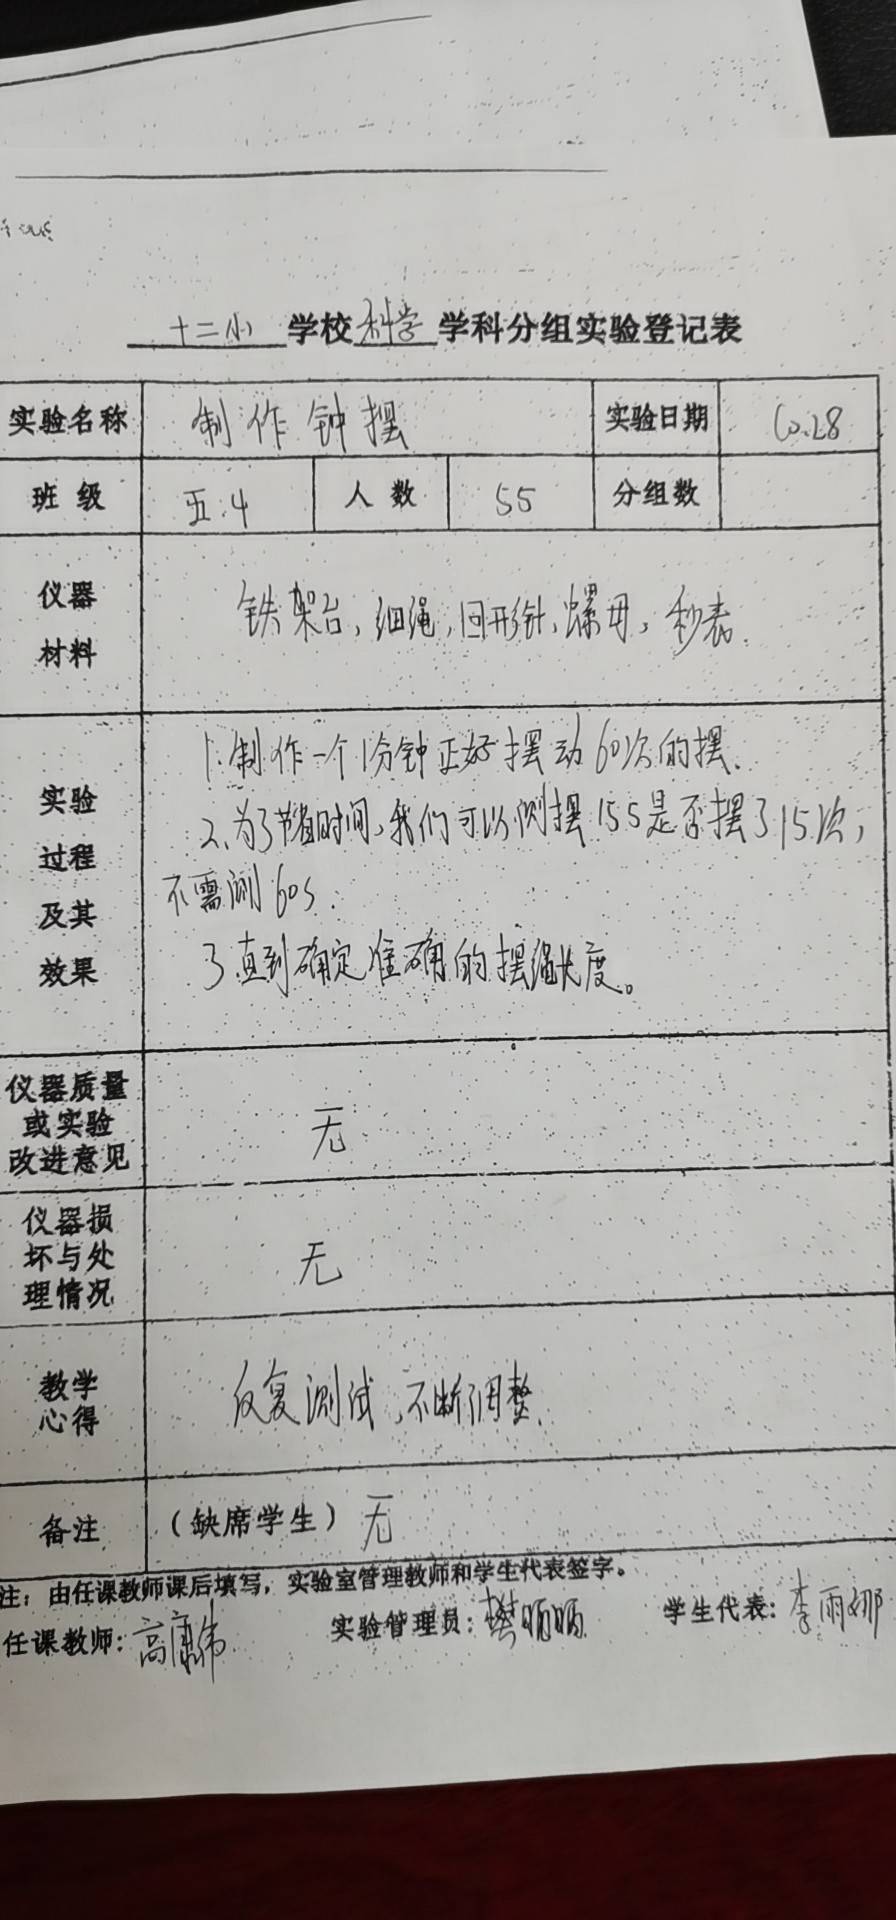 十二小学校科学学科分组实验登记表
实验名称 制作钟摆 实验日期 10.28
班级 五.4 人数 55 分组数
仪器材料 铁架台,细绳,回形针,螺母,秒表.
实验过程及其效果
1.制作一个1分钟正好摆动60次的摆.
2.为了节省时间,我们可以测摆15s是否摆了15次,
不需测60s.
3.直到确定准确的摆绳长度。
仪器质量或实验改进意见 无
仪器损坏与处理情况 无
教学心得 反复测试,不断调整.
备注 (缺席学生) 无
注:由任课教师课后填写,实验室管理教师和学生代表签字。
任课教师:高康伟 实验管理员:樊 学生代表:李雨娜